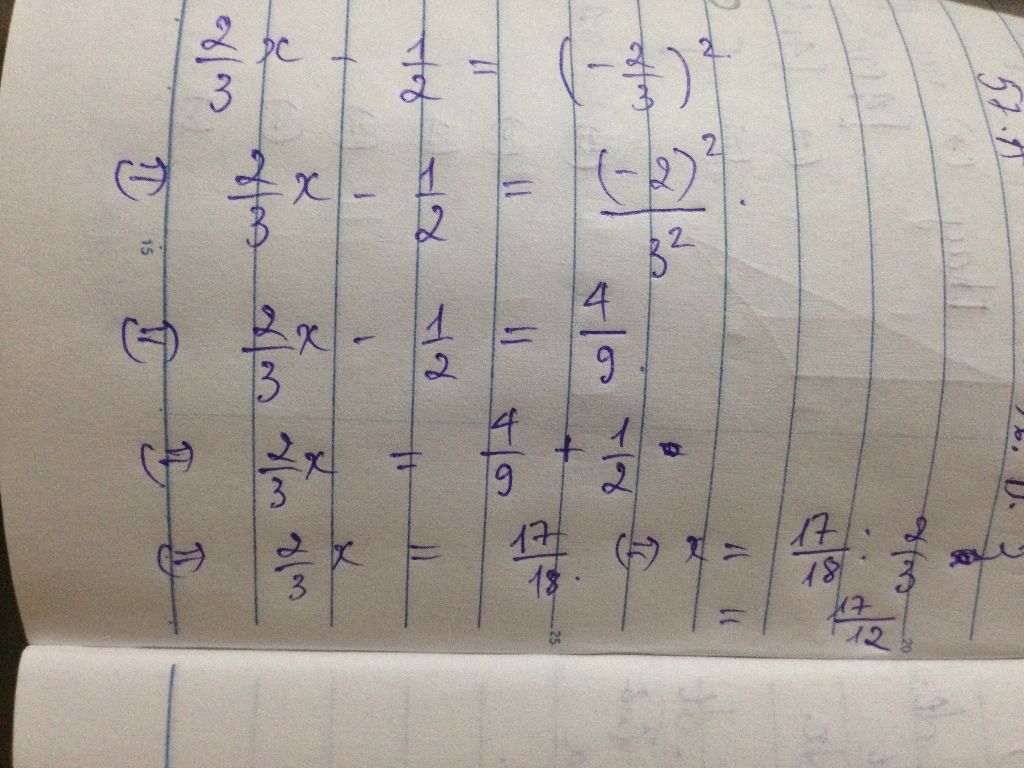 2/3 x - 1/2 = (-2/3)²
(=) 2/3 x - 1/2 = (-2)²/3² .
(=) 2/3 x - 1/2 = 4/9.
(=) 2/3 x = 4/9 + 1/2
(=) 2/3 x = 17/18. (=) x = 17/18 : 2/3
= 17/12
15
25
20